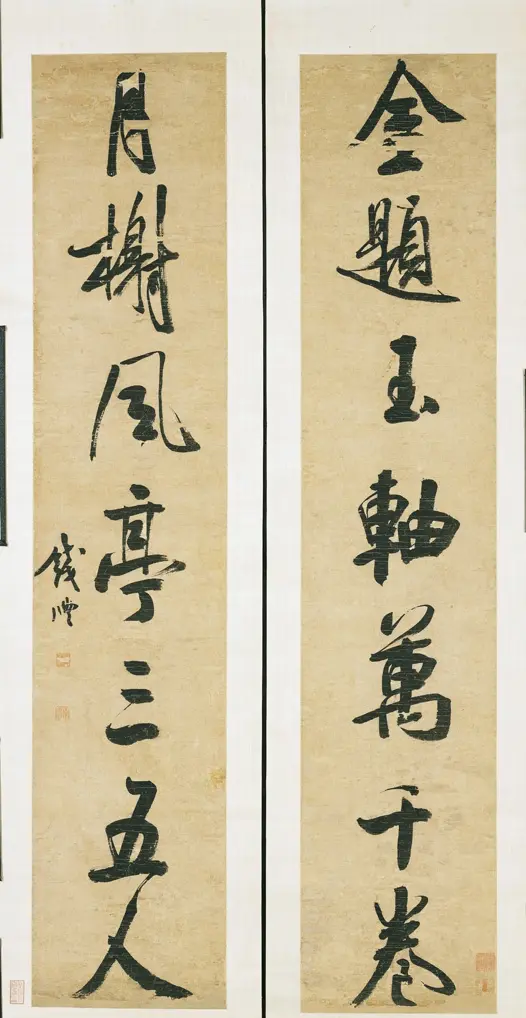 金題玉軸萬千卷
月榭風亭三五人
錢灃